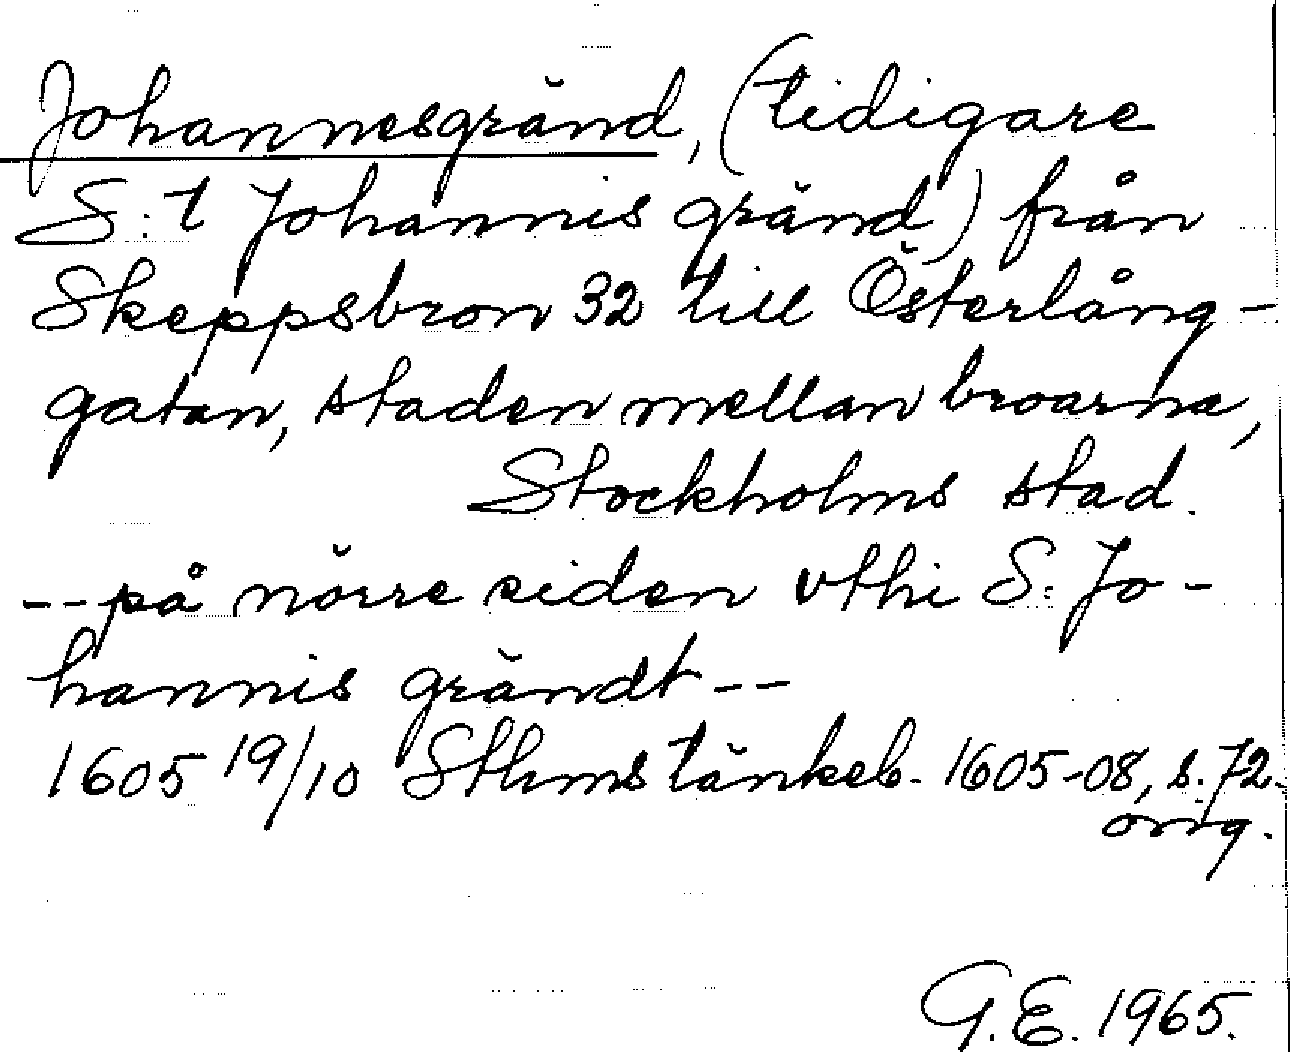 Johannesgränd, (tidigare
S:t Johannis gränd) från
Skeppsbron 32 till Österlång-
gatan, staden mellan broarna,
Stockholms stad.
-- på nörre siden vthi S: Jo-
hannis grändt --
1605 19/10 Sthms tänkeb. 1605-08, s. 72.
orig.
G.E. 1965.